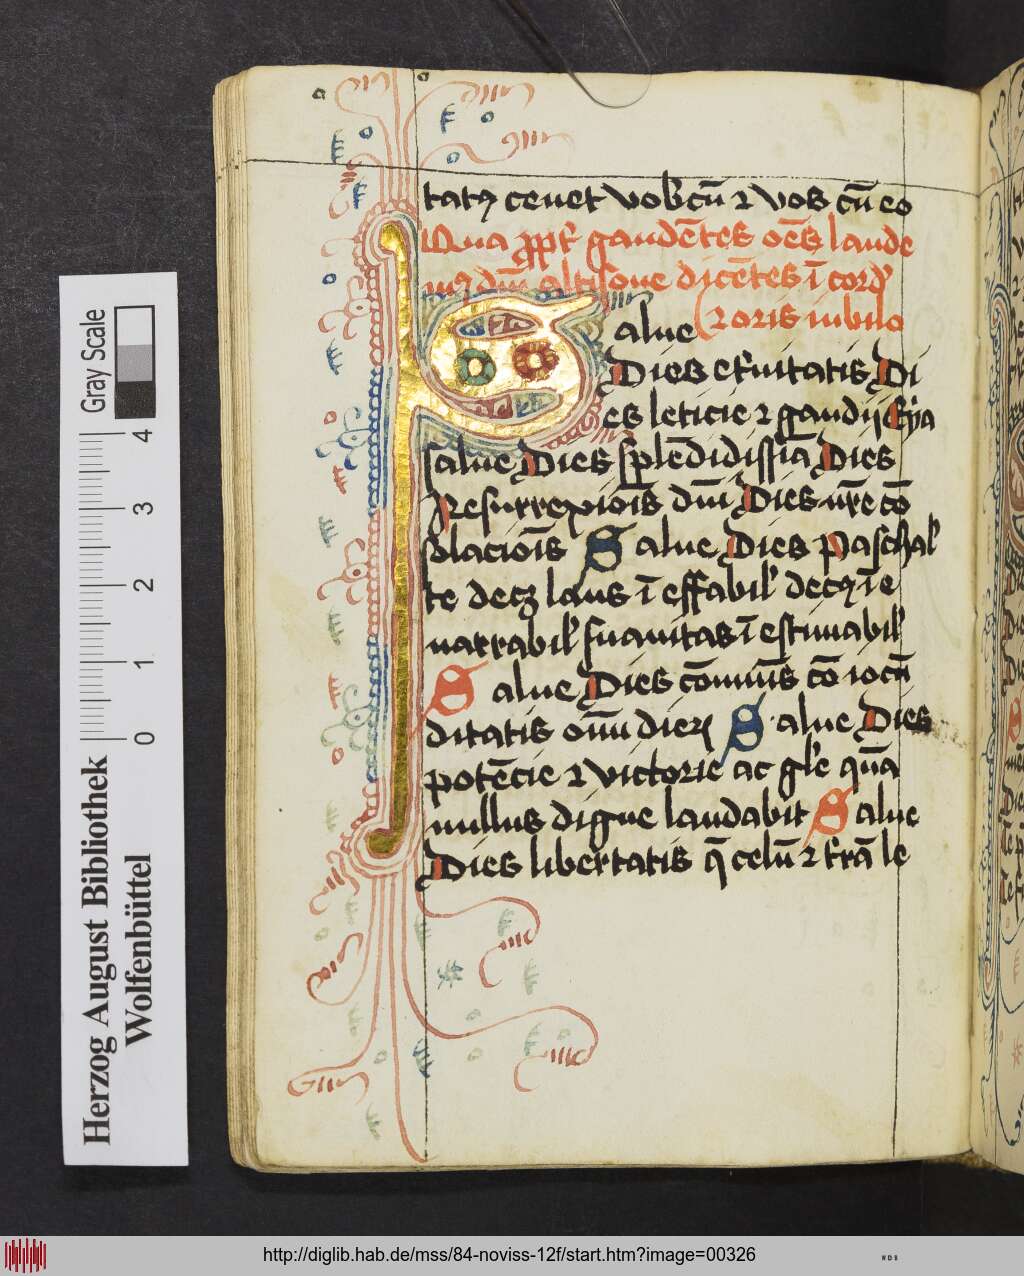 tatꝫ cenet vobcū ⁊ vos cū eo
Qua ꝓpt' gaudētes oēs laude
mꝰ dīn̄ altisone dicētes ī cord'
⁊ oris iubilo
alue
Dies et'nitatis Di
es leticie ⁊ gaudij Eya
salue Dies splēdidissīa Dies
Resurrexiōis dīn̄ī Dies nr̄e cō
solaciōīs Salue Dies paschal'
te decꝫ laus ī effabil' decꝰ īe
narrabil' suauitas ī estimabil'
Salue Dies cōmūīs cō iocū
ditatis oīm̄ dieꝝ Salue Dies
potēcie ⁊ victorie ac gl'e quā
nullus digne laudabit Salue
Dies libertatis q̄ celū ⁊ t'rā le
Gray Scale
0 1 2 3 4
Herzog August Bibliothek
Wolfenbüttel
http://diglib.hab.de/mss/84-noviss-12f/start.htm?image=00326